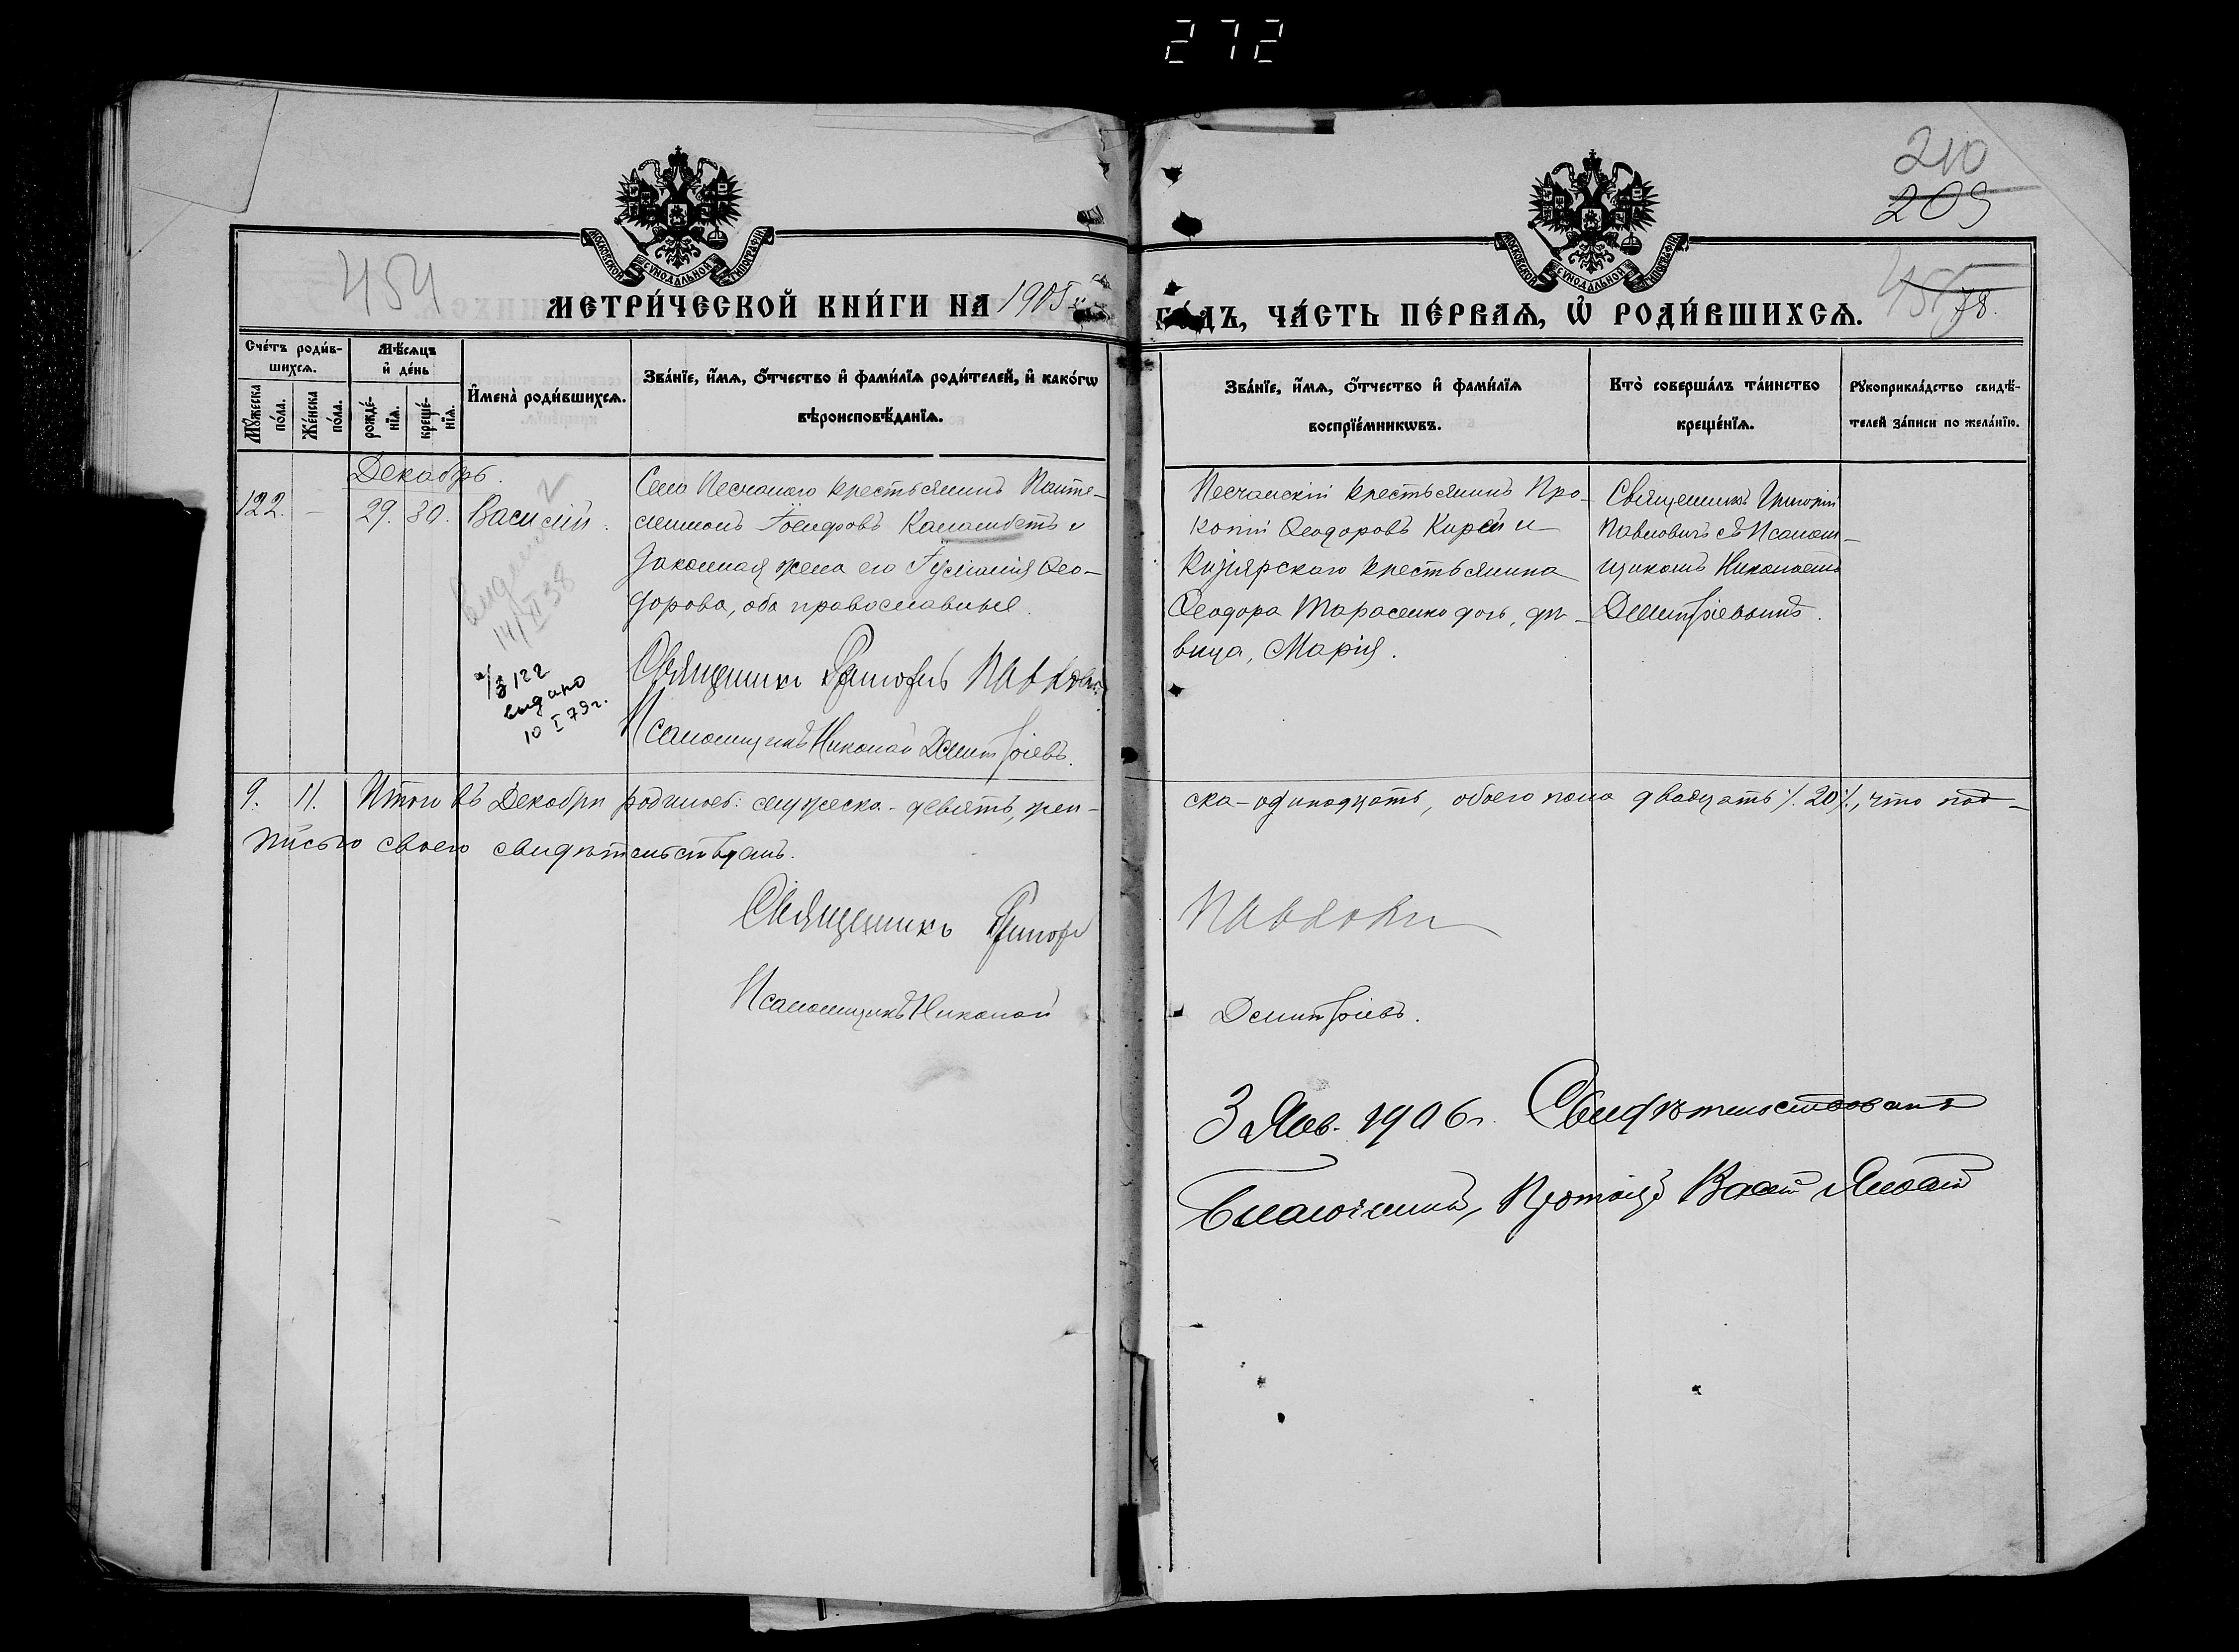 272
210
209
454
78.
МОСКОВСКОЙ СѴНОДАЛЬНОЙ ТИПОГРАФІИ
МОСКОВСКОЙ СѴНОДАЛЬНОЙ ТИПОГРАФІИ
МЕТРИ́ЧЕСКОЙ КНИ́ГИ НА 1905
ГО́ДЪ, ЧА́СТЬ ПЕ́РВАѦ, Ѡ҆ РОДИ́ВШИХСѦ.
Сче́тъ роди́в-
шихсѧ.
Мꙋ́жеска по́ла.
Же́нска по́ла.
Мѣ́сѧцъ и҆ де́нь
рожде́-нїѧ.
креще́-нїѧ.
И҆мена̀ роди́вшихсѧ.
Зва́нїе, и҆́мѧ, ѻ҆́тчество и҆ фами́лїѧ роди́телей, и҆ како́гѡ
вѣроисповѣ́данїѧ.
Зва́нїе, и҆́мѧ, ѻ҆́тчество и҆ фами́лїѧ
воспрїе́мникѡвъ.
Кто̀ соверша́лъ та́инство
креще́нїѧ.
Рꙋкоприкла́дство свидѣ́-
телей за́писи по жела́нїю.
Декабрь.
122. — 29. 30. Василій.
Села Песчаного крестьянинъ Панте-
леимонъ Іосифовъ Каламбетъ и
законная жена его Іуліанія Ѳео-
дорова, оба православные.
Священникъ Григорій Павлович
Псаломщикъ Николай Дмитріевъ.
14/VI 38
а/з 122
выдано
10 I 79 г.
Песчанскій крестьянинъ Про-
копій Ѳеодоровъ Кирей и
Козіярскаго крестьянина
Ѳеодора Тарасенко дочь, дѣ-
вица, Марія.
Священникъ Григорій
Павловичъ съ Псалом-
щикомъ Николаемъ
Дмитріевымъ.
9. 11. Итого въ Декабрѣ родилось: мужеска - девять, жен-
ска - одинадцать, обоего пола двадцать ./. 20 ./., что под-
писью своею свидѣтельствуемъ.
Священникъ Григорій
Павлович
Псаломщикъ Николай
Дмитріевъ.
3 Янв. 1906 г. Свидѣтельствовалъ
Благочинный, Протоіер Васил